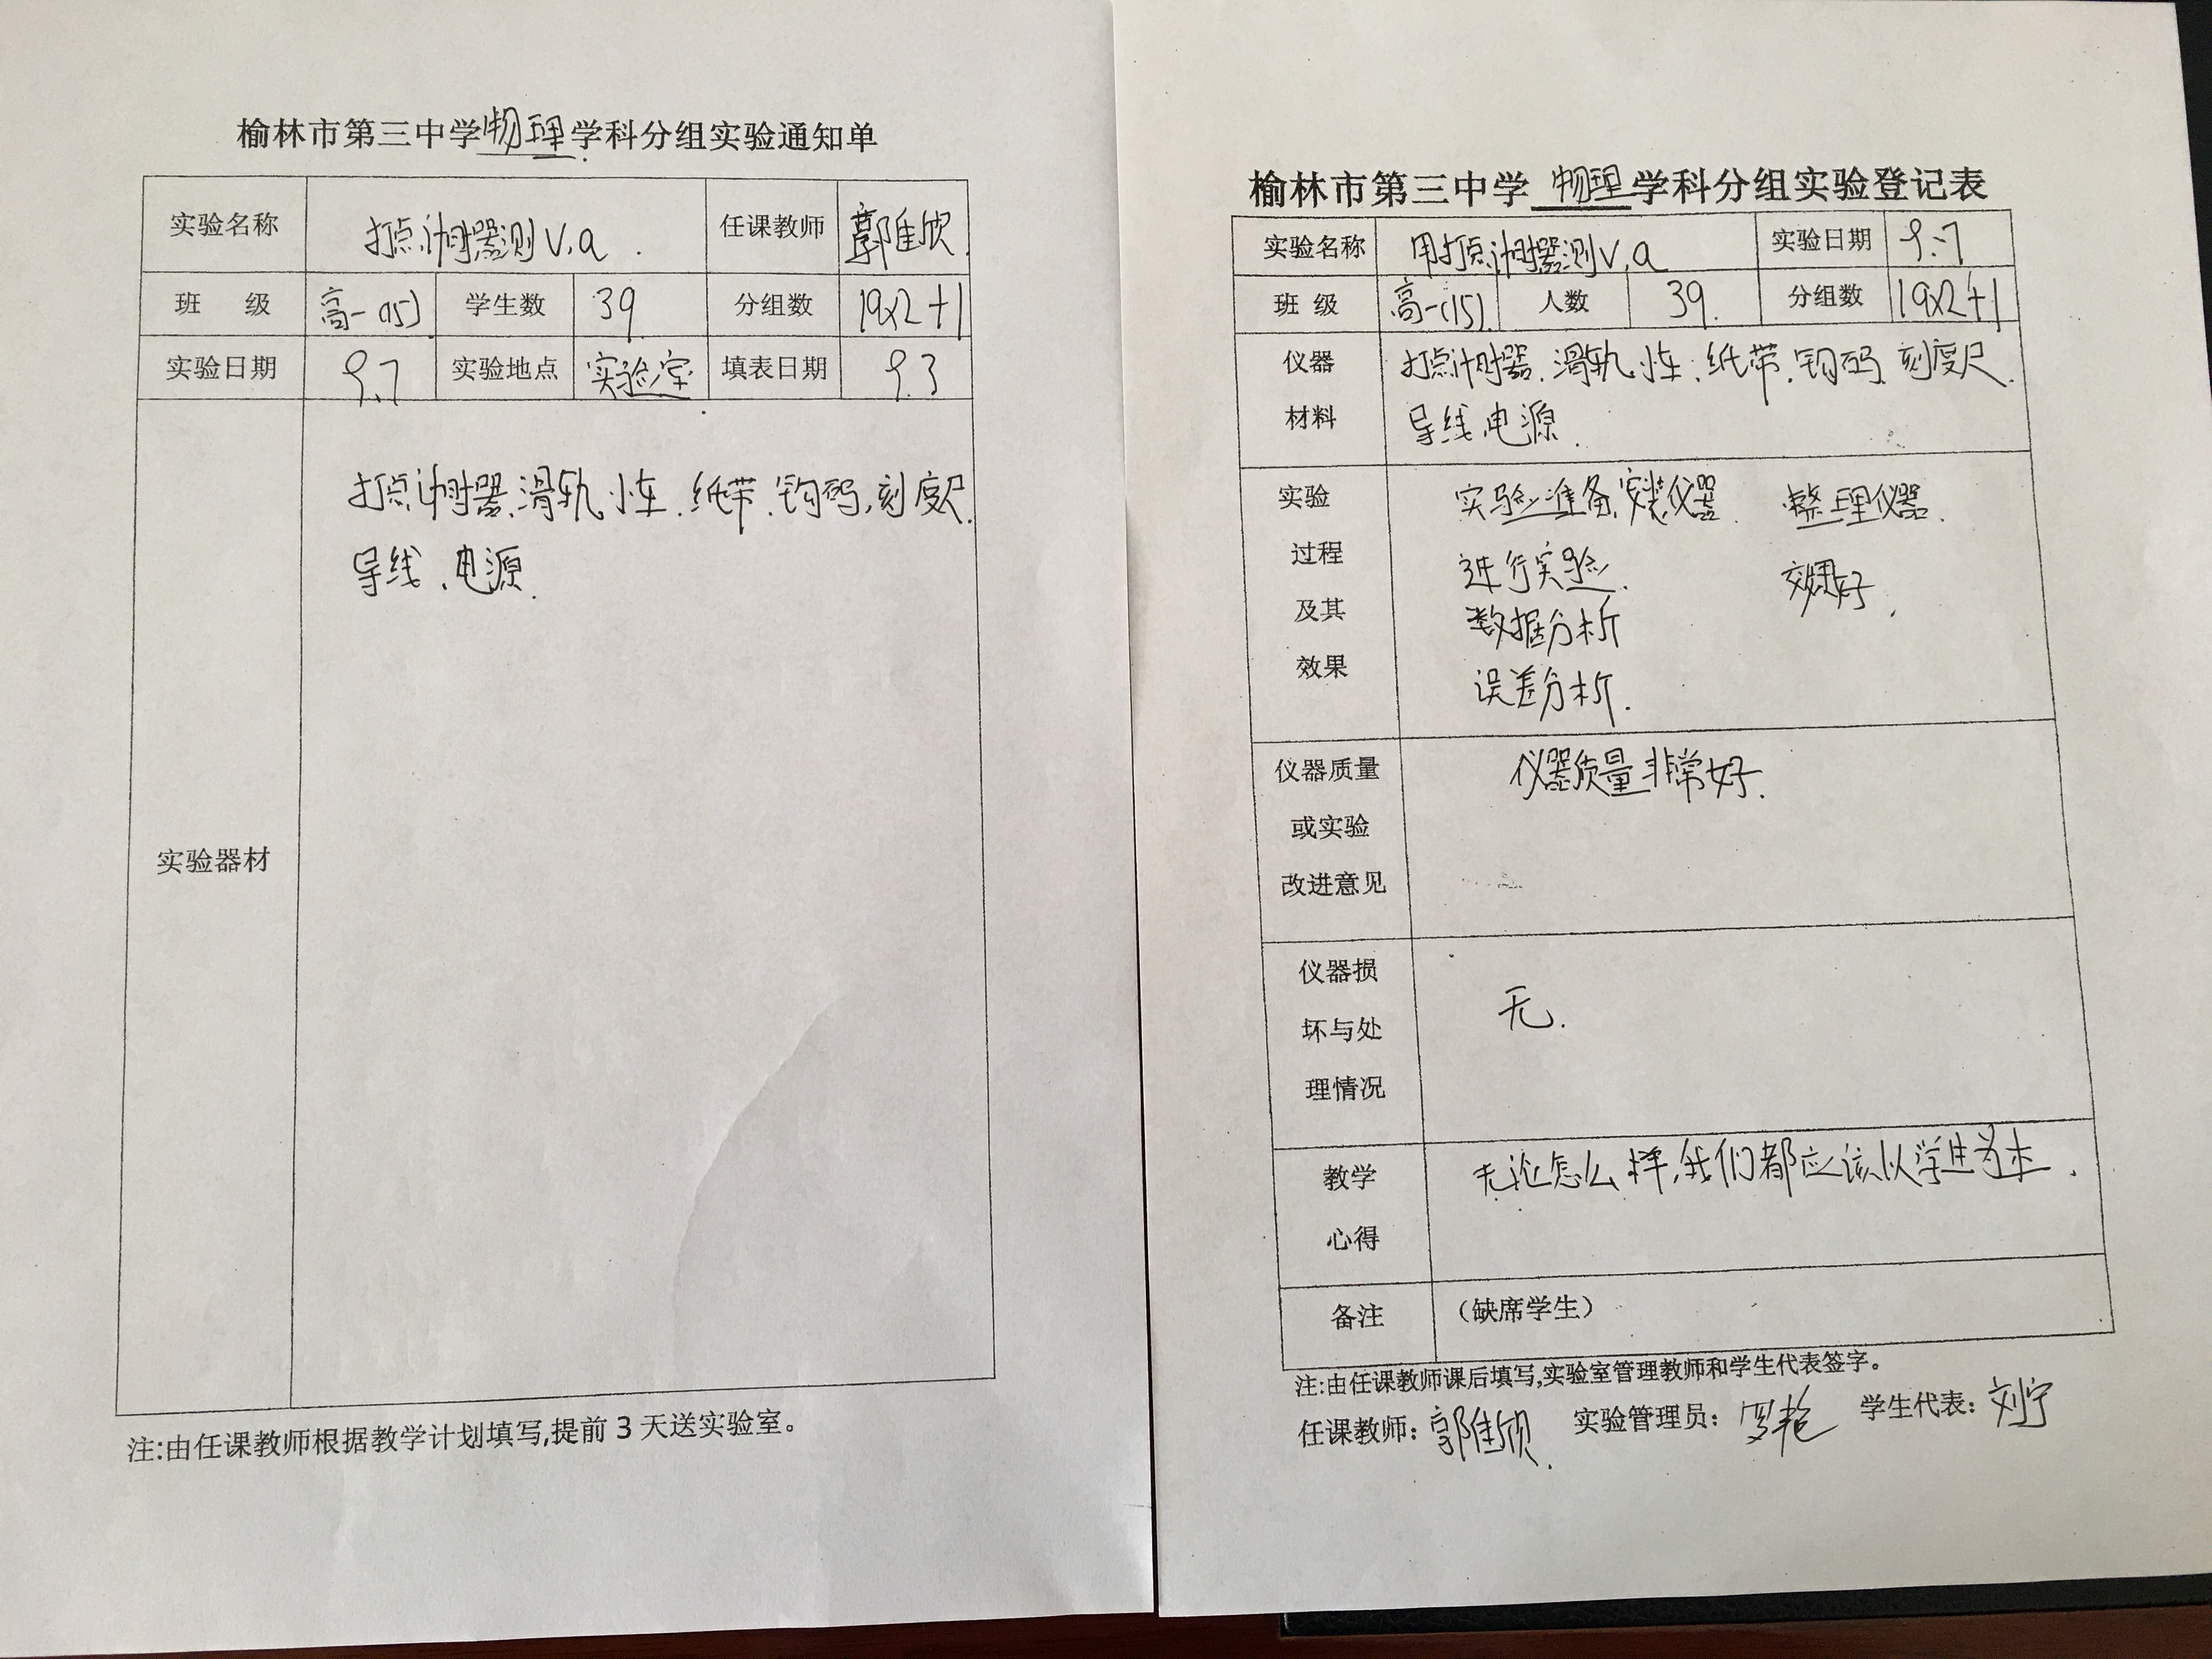 榆林市第三中学物理学科分组实验通知单
实验名称 打点计时器测V,a. 任课教师 郭佳欣.
班 级 高一(15) 学生数 39 分组数 19x2+1
实验日期 9.7 实验地点 实验室 填表日期 9.3
打点计时器、滑轨、小车、纸带、钩码,刻度尺.
导线、电源.
实验器材
注:由任课教师根据教学计划填写,提前3天送实验室。
榆林市第三中学物理学科分组实验登记表
实验名称 用打点计时器测V,a 实验日期 9.7
班 级 高一(15). 人数 39. 分组数 19x2+1
仪器 打点计时器、滑轨、小车、纸带、钩码、刻度尺.
材料 导线、电源.
实验 实验准备,安装仪器. 整理仪器.
过程 进行实验. 效果好.
及其 数据分析
效果 误差分析.
仪器质量 仪器质量非常好.
或实验
改进意见
仪器损
坏与处 无.
理情况
教学 无论怎么样,我们都应该以学生为本.
心得
备注 (缺席学生)
注:由任课教师课后填写,实验室管理教师和学生代表签字。
任课教师: 郭佳欣. 实验管理员: 罗艳 学生代表: 刘宁